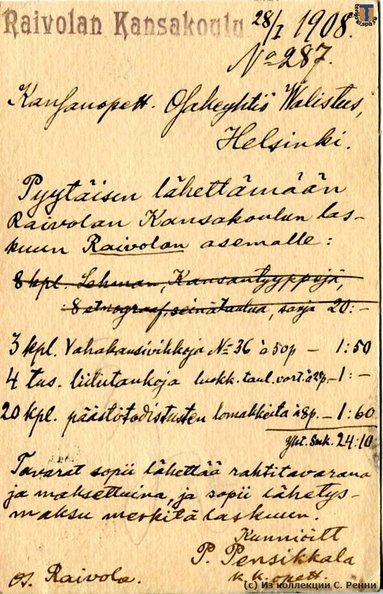 Raivolan Kansakoulu
28/I 1908.
No 287.
Kansanopett. Osakeyhtiö Walistus,
Helsinki.
Pyytäisin lähettämään
Raivolan Kansakoulun las-
kuun Raivolan asemalle:
8 kpl. Lehman, Kansantyyppejä,
8 etnograf. seinätaulua, sarja 20:-
3 kpl. Vahakansivihkoja No 36 à 50p - 1:50
4 tus. liitutankoja luokk. taul. vart. à 25p - 1: -
20 kpl. päästötodistusten lomakkeita à 8p. - 1:60
Yht. Smk. 24:10
Tavarat sopii lähettää rahtitavarana
ja maksettuina, ja sopii lähetys-
maksu merkitä laskuun.
Kunnioitt
P. Pensikkala
k.k. opett.
os. Raivola.
(c) Из коллекции С. Ренни